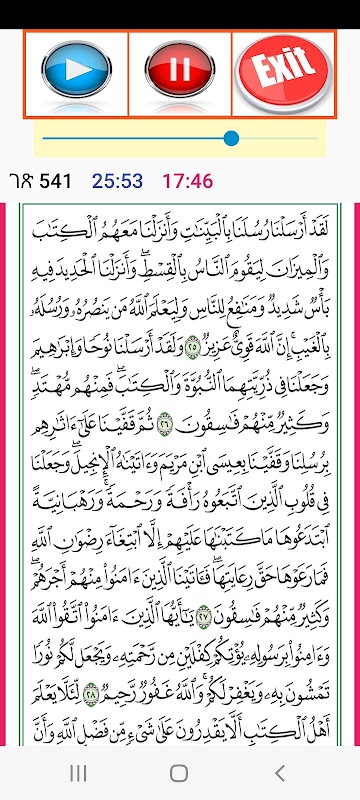 Exit
ገጽ 541 25:53 17:46
لَقَدْ أَرْسَلْنَا رُسُلَنَا بِالْبَيِّنَٰتِ وَأَنزَلْنَا مَعَهُمُ الْكِتَٰبَ
وَالْمِيزَانَ لِيَقُومَ النَّاسُ بِالْقِسْطِ ۖ وَأَنزَلْنَا الْحَدِيدَ فِيهِ
بَأْسٌ شَدِيدٌ وَمَنَٰفِعُ لِلنَّاسِ وَلِيَعْلَمَ اللَّهُ مَن يَنصُرُهُۥ وَرُسُلَهُۥ
بِالْغَيْبِ ۚ إِنَّ اللَّهَ قَوِيٌّ عَزِيزٌ ٢٥ وَلَقَدْ أَرْسَلْنَا نُوحًا وَإِبْرَٰهِيمَ
وَجَعَلْنَا فِي ذُرِّيَّتِهِمَا النُّبُوَّةَ وَالْكِتَٰبَ ۖ فَمِنْهُم مُّهْتَدٍ ۖ
وَكَثِيرٌ مِّنْهُمْ فَٰسِقُونَ ٢٦ ثُمَّ قَفَّيْنَا عَلَىٰٓ ءَاثَٰرِهِم
بِرُسُلِنَا وَقَفَّيْنَا بِعِيسَى ابْنِ مَرْيَمَ وَءَاتَيْنَٰهُ الْإِنجِيلَ ۖ وَجَعَلْنَا
فِي قُلُوبِ الَّذِينَ اتَّبَعُوهُ رَأْفَةً وَرَحْمَةً ۚ وَرَهْبَانِيَّةً
ابْتَدَعُوهَا مَا كَتَبْنَٰهَا عَلَيْهِمْ إِلَّا ابْتِغَآءَ رِضْوَٰنِ اللَّهِ
فَمَا رَعَوْهَا حَقَّ رِعَايَتِهَا ۖ فَـَٔاتَيْنَا الَّذِينَ ءَامَنُوا مِنْهُمْ أَجْرَهُمْ ۖ
وَكَثِيرٌ مِّنْهُمْ فَٰسِقُونَ ٢٧ يَٰٓأَيُّهَا الَّذِينَ ءَامَنُوا اتَّقُوا اللَّهَ
وَءَامِنُوا بِرَسُولِهِۦ يُؤْتِكُمْ كِفْلَيْنِ مِن رَّحْمَتِهِۦ وَيَجْعَل لَّكُمْ نُورًا
تَمْشُونَ بِهِۦ وَيَغْفِرْ لَكُمْ ۚ وَاللَّهُ غَفُورٌ رَّحِيمٌ ٢٨ لِّئَلَّا يَعْلَمَ
أَهْلُ الْكِتَٰبِ أَلَّا يَقْدِرُونَ عَلَىٰ شَيْءٍ مِّن فَضْلِ اللَّهِ ۙ وَأَنَّ